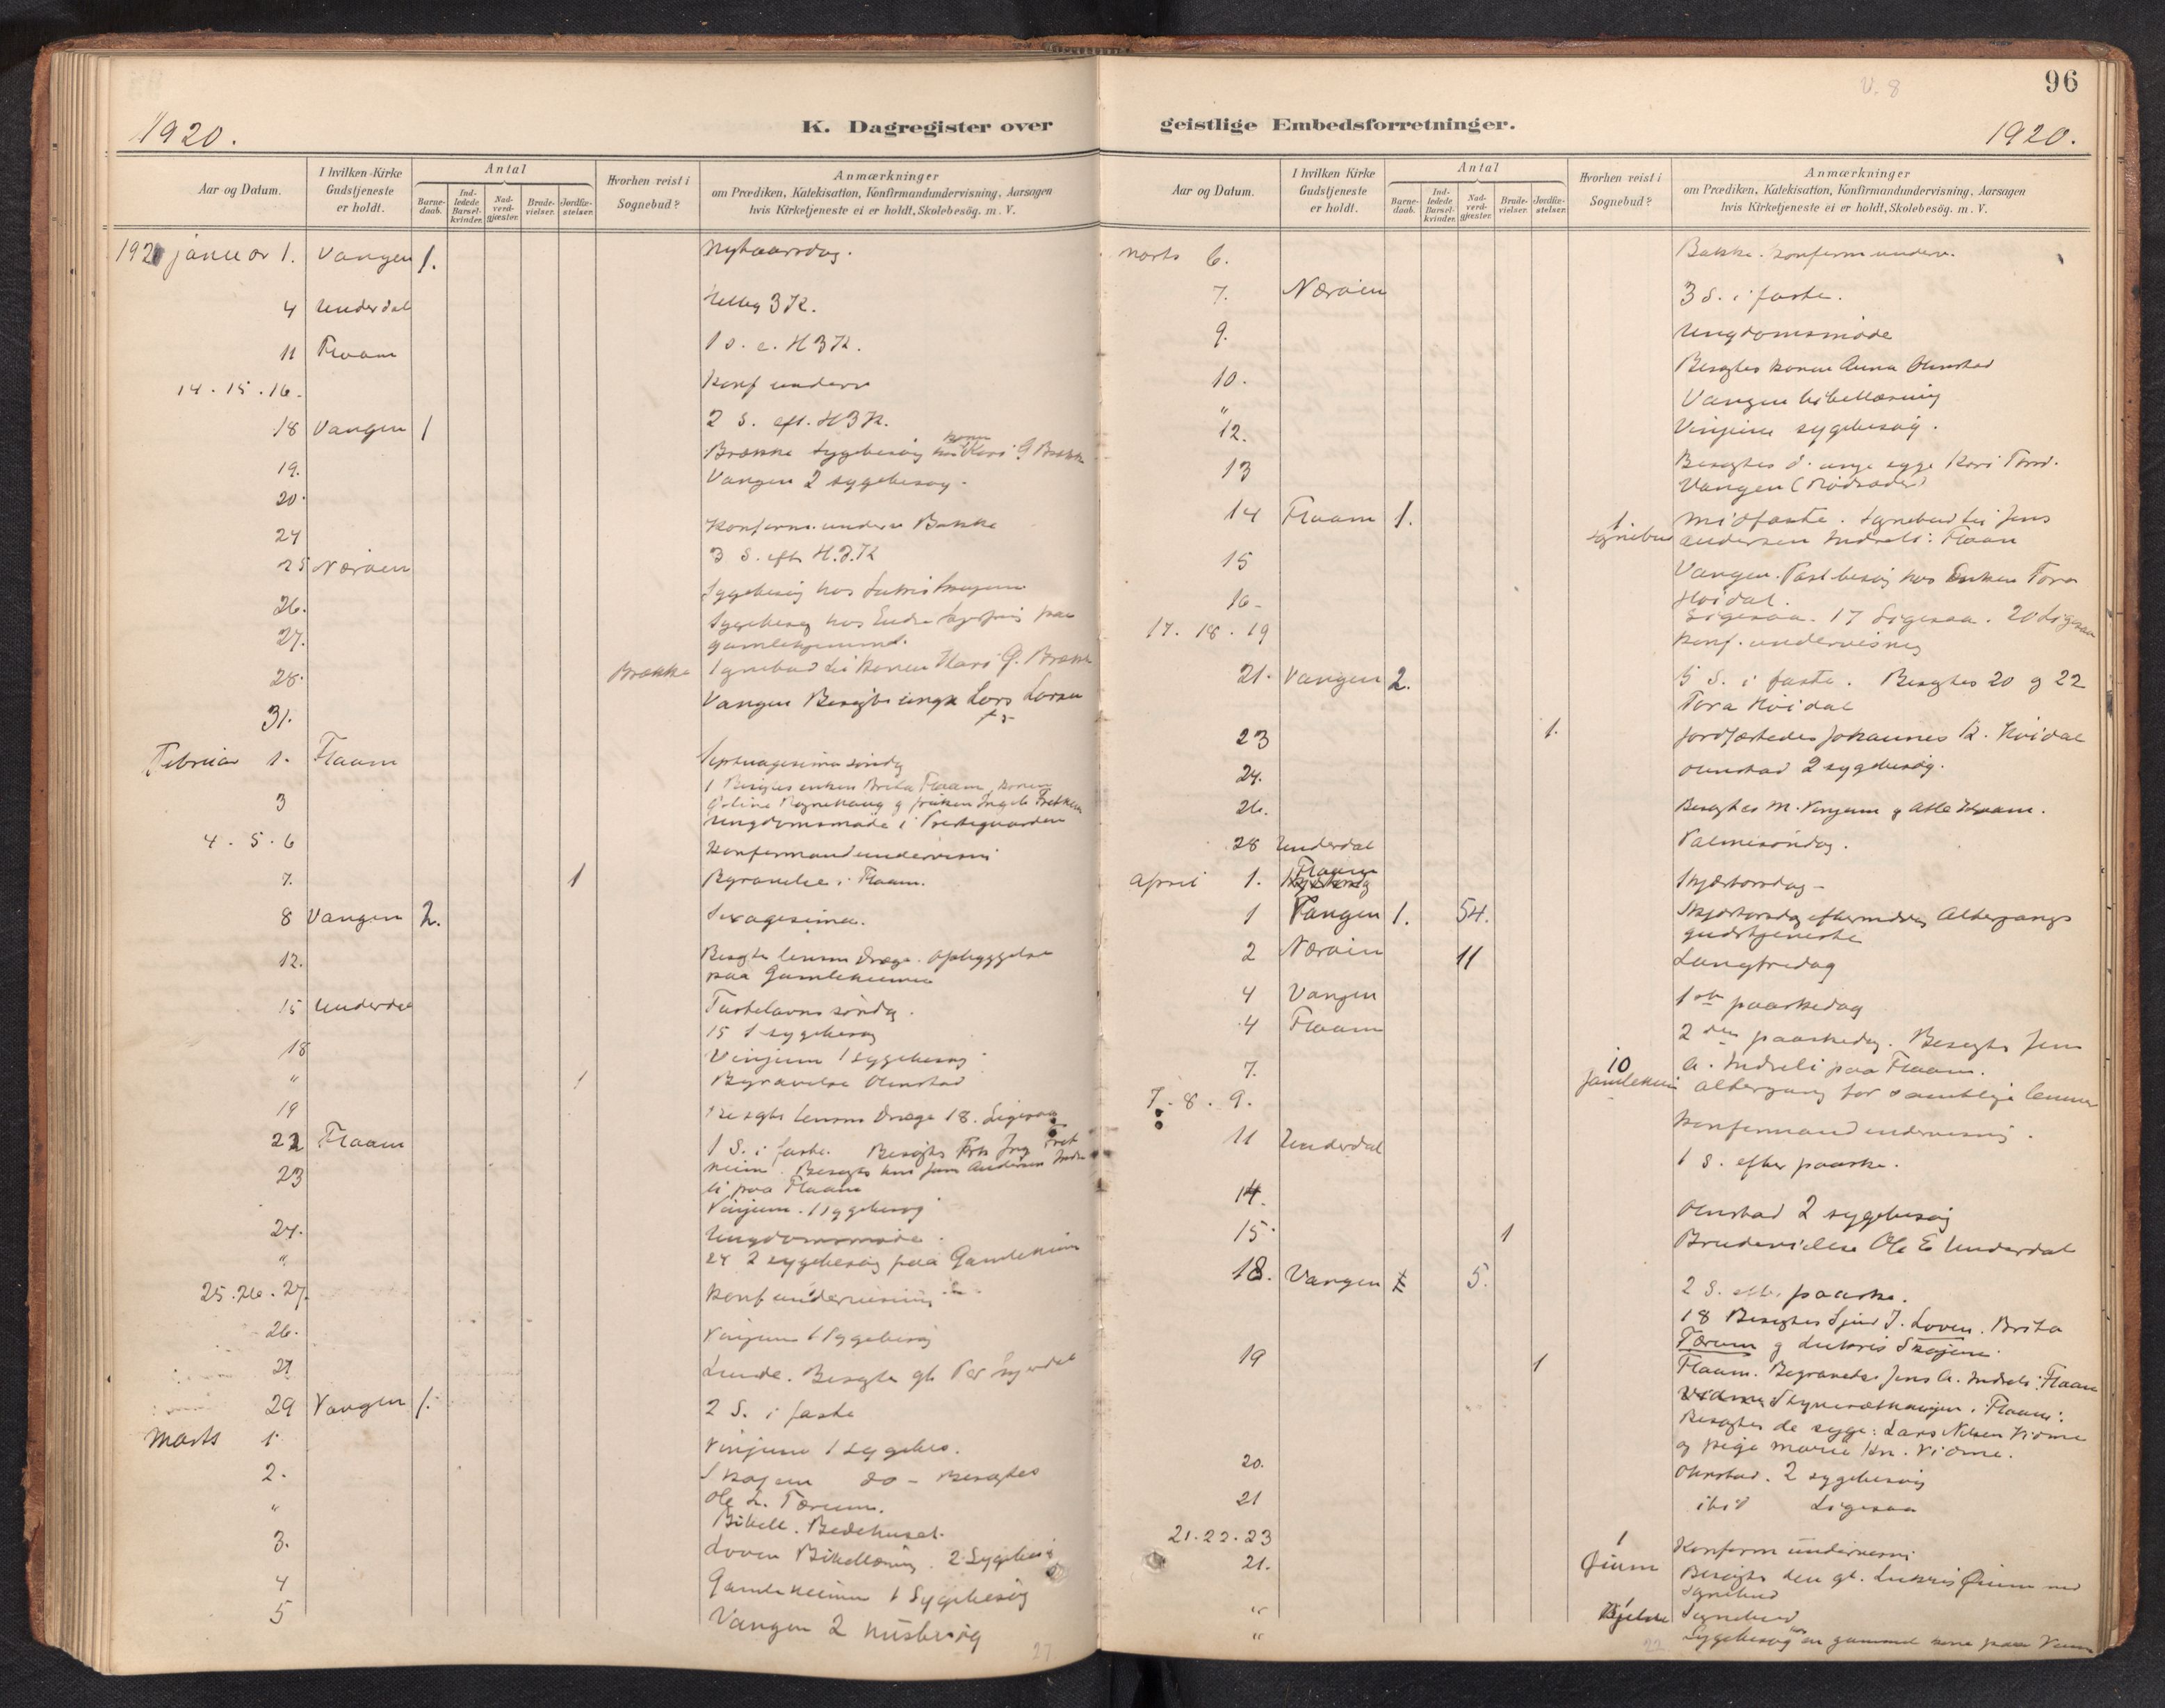 1920.
K. Dagregister over
Aar og Datum.
I hvilken Kirke Gudstjeneste er holdt.
Antal
Barne-daab.
Ind-ledede Barsel-kvinder.
Nad-verd-gjæster.
Brude-vielser.
Jordfæ-stelser.
Hvorhen reist i Sognebud?
Anmærkninger
om Prædiken, Katekisation, Konfirmandundervisning, Aarsagen
hvis Kirketjeneste ei er holdt, Skolebesög. m. V.
januar 1. Vangen 1. Nytaarsdag.
4 Underdal Hellig 3 K.
11 Flaam 1 s. e. H 3 K.
14. 15. 16. Konf underv
18 Vangen 1 2 S. eft. H 3 K.
19. Brække sygebesøg
20. Vangen 2 sygebesøg.
24 Konfirm. underv Bakke
25 Nærøen 3 S. eft H. 3. K
26. Sygebesøg hos
27. Sygebesøg hos Endre paa
gamlehjemmet.
28. Brække Sognebud til konen
31. Vangen Besøgte Lars Larsen
Februar 1. Flaam Septuagesima søndag
3 Besøgtes enken Brita Flaam, konen
Ungdomsmøde i Prestegaarden
4. 5. 6 Konfirmandundervisni
7. 1 Begravelse i Flaam.
8 Vangen 2. Sexagesima.
12. Besøgte lensm Dræge. Opbyggelse
paa Gamleheimen
15 Underdal Fastelavns søndag.
15 1 sygebesøg
18 Vinjum 1 sygebesøg
" 1 Begravelse Ohnstad
19 Besøgte lensm Dræge 18. Ligesaa
22 Flaam 1 S. i faste. Besøgtes
23 Besøgte Jens Andersen
li paa Flaam
Vinjum. 1 sygebesøg
24. Ungdomsmøde.
" 24 2 sygebesøg paa Gamleheim
25. 26. 27. Konf undervisning
26. Vinjum 1 Sygebesøg
27. Lunde. Besøgte gl. Per
29 Vangen 1. 2 S. i faste
Marts 1. Vinjum 1 sygebes.
2. Skajem do - Besøgtes
" Ole L. Tærum.
Bibell. Bedehuset.
3. Loven Bibellæsning. 2 Sygebesø
4 Gamleheimen 1 Sygebesøg
5 Vangen 2 husbesøg
27
V. 8
96
geistlige Embedsforretninger.
1920.
Aar og Datum.
I hvilken Kirke Gudstjeneste er holdt.
Antal
Barne-daab.
Ind-ledede Barsel-kvinder.
Nad-verd-gjæster.
Brude-vielser.
Jordfæ-stelser.
Hvorhen reist i Sognebud?
Anmærkninger
om Prædiken, Katekisation, Konfirmandundervisning, Aarsagen
hvis Kirketjeneste ei er holdt, Skolebesög. m. V.
Marts 6. Bakke. Konfirm underv.
7. Nærøien 3 S. i faste.
9. Ungdomsmøde
10. Besøgtes konen Anna Ohnstad
" Vangen bibellæsning
12. Vinjum sygebesøg.
13 Besøgtes d. unge syge Kari
Vangen
14 Flaam 1. 1 Midfaste. Sognebud til Jens
Sognebud Andersen Indreli: Flaam
15 Vangen. Past besøg hos Enken Tora
Høidal.
16- Ligesaa. 17 Ligesaa. 20 Ligesaa
17. 18. 19 Konf. undervisning
21. Vangen 2. 5 S. i faste. Besøgtes 20 og 22
Tora Høidal
23 1. Jordfæstedes Johannes K. Høidal
24. Ohnstad 2 sygebesøg.
26. Besøgtes M. Vinjum og Atle
28 Underdal Palmesøndag.
April 1. Flaam Skjærtorsdag -
1 Vangen 1. 54. Skjærtorsdag eftermiddag Altergangs
gudstjeneste
2 Nærøien 11 Langfredag
4 Vangen 1ste paaskedag
4 Flaam 2den paaskedag. Besøgtes Jens
A. Indreli paa Flaam.
7. 10 Gamleheim Altergang for samtlige lemmer
7. 8. 9. Konfirmandundervisning.
11 Underdal 1 S. efter paaske.
14. Ohnstad 2 sygebesøg
15. 1 Brudevielse Ole E Underdal
18. Vangen 5. 2 S. eft. paaske.
18 Besøgtes Sjur J. Loven. Brita
Tærum og Lukris Skajem.
19 1 Flaam. Begravedes Jens A. Indreli: Flaam
Besøgtes de syge: Lars Nilsen Vidme
og pige Marie Vidme.
20. Ohnstad. 2 sygebesøg
21 ibid Ligesaa
21. 22. 23 Konfirm undervisni
21. 1 Øium Besøgte den gl. Lukris Øium med
Sognebud
" Bjelde Sognebud
" Sygebesøg hos en gammel kone paa
22